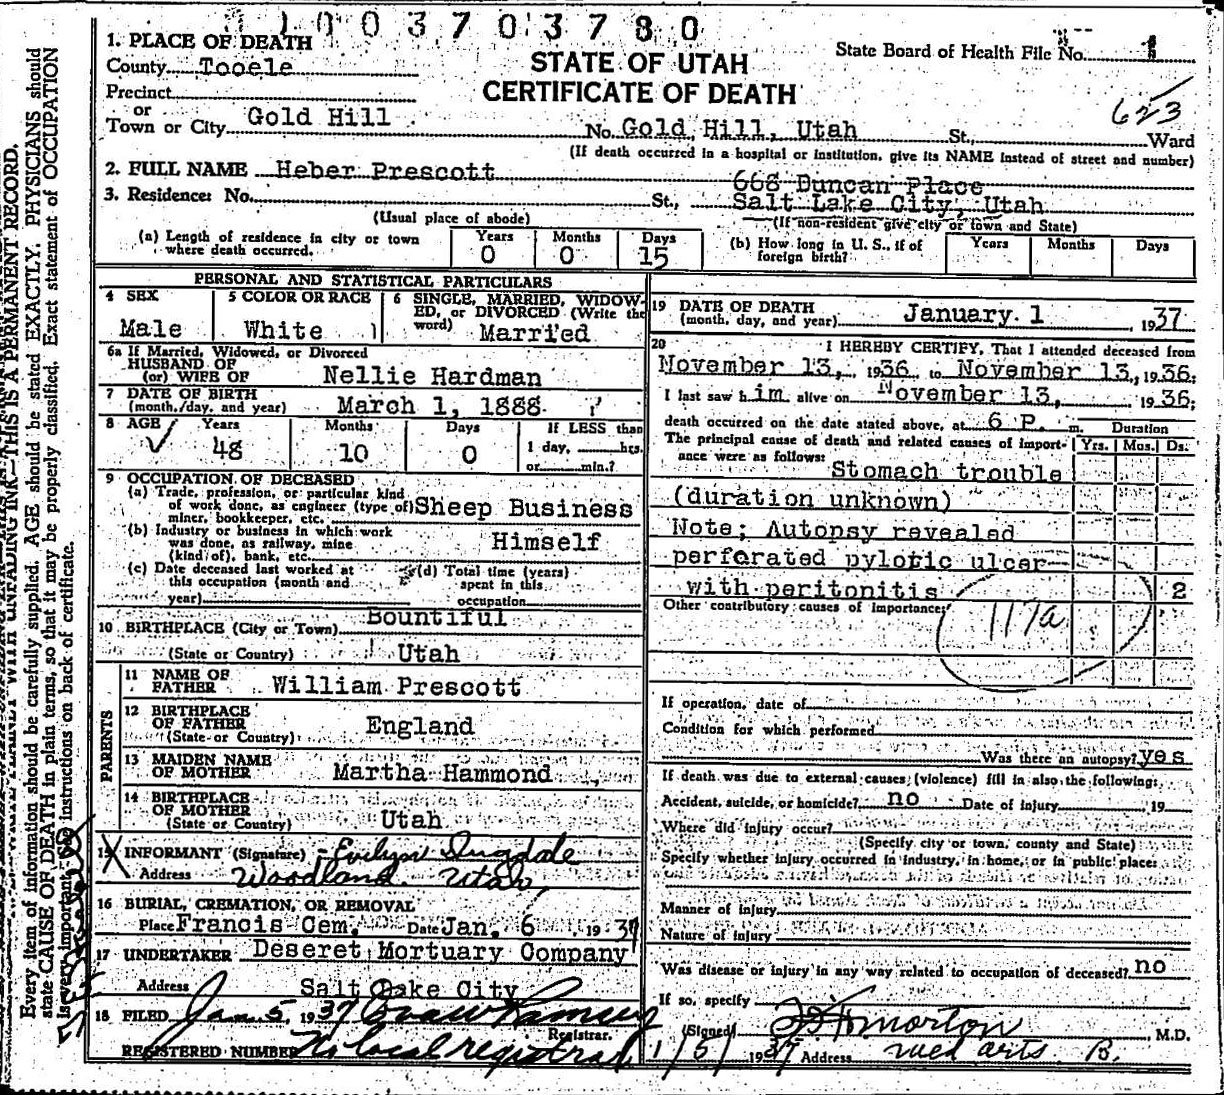 1003703780
1. PLACE OF DEATH
County Tooele
Precinct
or
Town or City Gold Hill
STATE OF UTAH
CERTIFICATE OF DEATH
State Board of Health File No. 1
623
No. Gold Hill, Utah St. Ward
(If death occurred in a hospital or institution, give its NAME instead of street and number)
2. FULL NAME Heber Prescott
668 Duncan Place
3. Residence: No. St., Salt Lake City, Utah
(Usual place of abode) (If non-resident give city or town and State)
(a) Length of residence in city or town where death occurred. Years 0 Months 0 Days 15
(b) How long in U. S., if of foreign birth? Years Months Days
PERSONAL AND STATISTICAL PARTICULARS
4 SEX Male
5 COLOR OR RACE White
6 SINGLE, MARRIED, WIDOWED, or DIVORCED (Write the word) Married
6a If Married, Widowed, or Divorced
HUSBAND OF
(or) WIFE OF Nellie Hardman
7 DATE OF BIRTH
(month, day, and year) March 1, 1888
8 AGE Years 48 Months 10 Days 0 If LESS than 1 day, hrs. or min.?
9 OCCUPATION OF DECEASED
(a) Trade, profession, or particular kind of work done, as engineer (type of) miner, bookkeeper, etc. Sheep Business
(b) Industry or business in which work was done, as railway, mine (kind of), bank, etc. Himself
(c) Date deceased last worked at this occupation (month and year)
(d) Total time (years) spent in this occupation
10 BIRTHPLACE (City or Town) Bountiful
(State or Country) Utah
PARENTS
11 NAME OF FATHER William Prescott
12 BIRTHPLACE OF FATHER (State or Country) England
13 MAIDEN NAME OF MOTHER Martha Hammond
14 BIRTHPLACE OF MOTHER (State or Country) Utah
15 INFORMANT (Signature) Evilyn Dugdale
Address Woodland Utah
16 BURIAL, CREMATION, OR REMOVAL
Place Francis Cem. Date Jan. 6, 1937
17 UNDERTAKER Deseret Mortuary Company
Address Salt Lake City
18 FILED Jan 5, 1937 Ramsey
Registrar.
REGISTERED NUMBER No local registrar
19 DATE OF DEATH
(month, day, and year) January 1, 1937
20 I HEREBY CERTIFY, That I attended deceased from
November 13, 1936 to November 13, 1936;
I last saw him alive on November 13, 1936;
death occurred on the date stated above, at 6 P. m. Duration
The principal cause of death and related causes of importance were as follows: Yrs. Mos. Ds.
Stomach trouble
(duration unknown)
Note; Autopsy revealed
perforated pylotic ulcer
with peritonitis 2
Other contributory causes of importance:
117a
If operation, date of
Condition for which performed
Was there an autopsy? yes
If death was due to external causes (violence) fill in also the following:
Accident, suicide, or homicide? no Date of injury 19
Where did injury occur?
(Specify city or town, county and State)
Specify whether injury occurred in industry, in home, or in public place:
Manner of injury
Nature of injury
Was disease or injury in any way related to occupation of deceased? no
If so, specify
(Signed) Morton M.D.
1/5/1937 Address Med arts B.
Every item of information should be carefully supplied. AGE should be stated EXACTLY. PHYSICIANS should
state CAUSE OF DEATH in plain terms, so that it may be properly classified. Exact statement of OCCUPATION
is very important. See instructions on back of certificate.
THIS IS A PERMANENT RECORD.